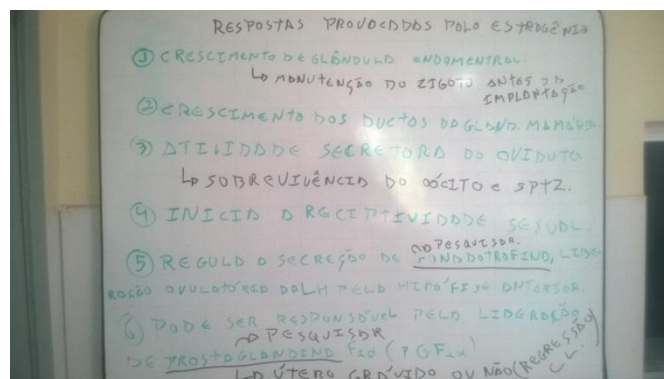 RESPOSTAS PROVOCADAS PELO ESTROGÊNIO
① CRESCIMENTO DE GLÂNDULA ENDOMENTRAL.
↳ MANUTENÇÃO DO ZIGOTO ANTES DA
IMPLANTAÇÃO
② CRESCIMENTO DOS DUCTOS DA GLAND. MAMÁRIA
③ ATIVIDADE SECRETORA DO OVIDUTO
↳ SOBREVIVÊNCIA DO OÓCITO E SPTZ.
④ INICIA A RECEPTIVIDADE SEXUAL.
PESQUISAR.
⑤ REGULA A SECREÇÃO DE GONADOTROFINA, LIBE-
RAÇÃO OVULATÓRIA DO LH PELA HIPÓFISE ANTERIOR.
⑥ PODE SER RESPONSÁVEL PELA LIBERAÇÃO
PESQUISAR
DE PROSTAGLANDINA F2α. (PGF2α)
↳ ÚTERO GRÁVIDO OU NÃO (REGRESSÃO
C L.)